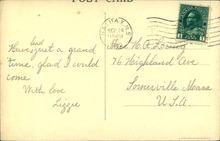 POST CARD
Had
Have just a grand
time, glad I could
come
With love
Lizzie
76 Highland Ave
Somerville Mass
U.S.A.